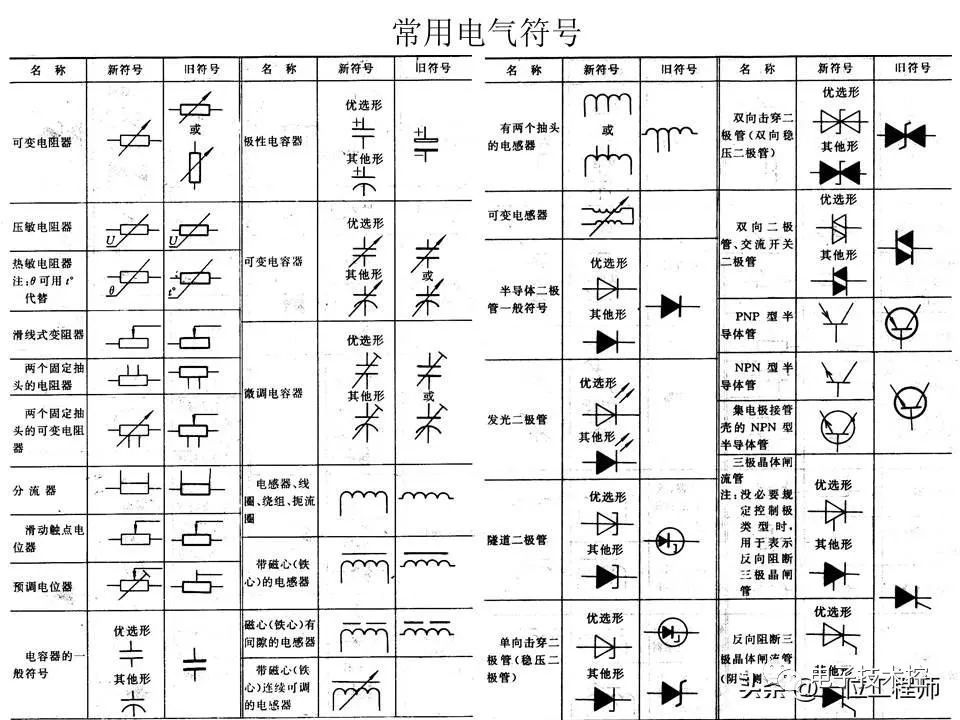 常用电气符号
名 称 新符号 旧符号
可变电阻器
或
压敏电阻器
U
U
热敏电阻器
注:θ可用t°
代替
θ
t°
滑线式变阻器
两个固定抽
头的电阻器
两个固定抽
头的可变电阻
器
分流器
滑动触点电
位器
预调电位器
电容器的一
般符号
优选形
其他形
名 称 新符号 旧符号
极性电容器
优选形
其他形
可变电容器
优选形
其他形
或
微调电容器
优选形
其他形
或
电感器、线
圈、绕组、扼流
圈
带磁心(铁
心)的电感器
磁心(铁心)有
间隙的电感器
带磁心(铁
心)连续可调
的电感器
名 称 新符号 旧符号
有两个抽头
的电感器
或
可变电感器
半导体二极
管一般符号
优选形
其他形
发光二极管
优选形
其他形
隧道二极管
优选形
其他形
单向击穿二
极管(稳压二
极管)
优选形
其他形
名 称 新符号 旧符号
双向击穿二
极管(双向稳
压二极管)
优选形
其他形
双向二极
管、交流开关
二极管
优选形
其他形
PNP 型半
导体管
NPN 型半
导体管
集电极接管
壳的 NPN 型
半导体管
三极晶体闸
流管
注:没必要规
定控制极
类型时,
用于表示
反向阻断
三极晶闸
管
优选形
其他形
反向阻断三
极晶体闸流管
优选形
其他形
电子技术控
头条 @一位工程师